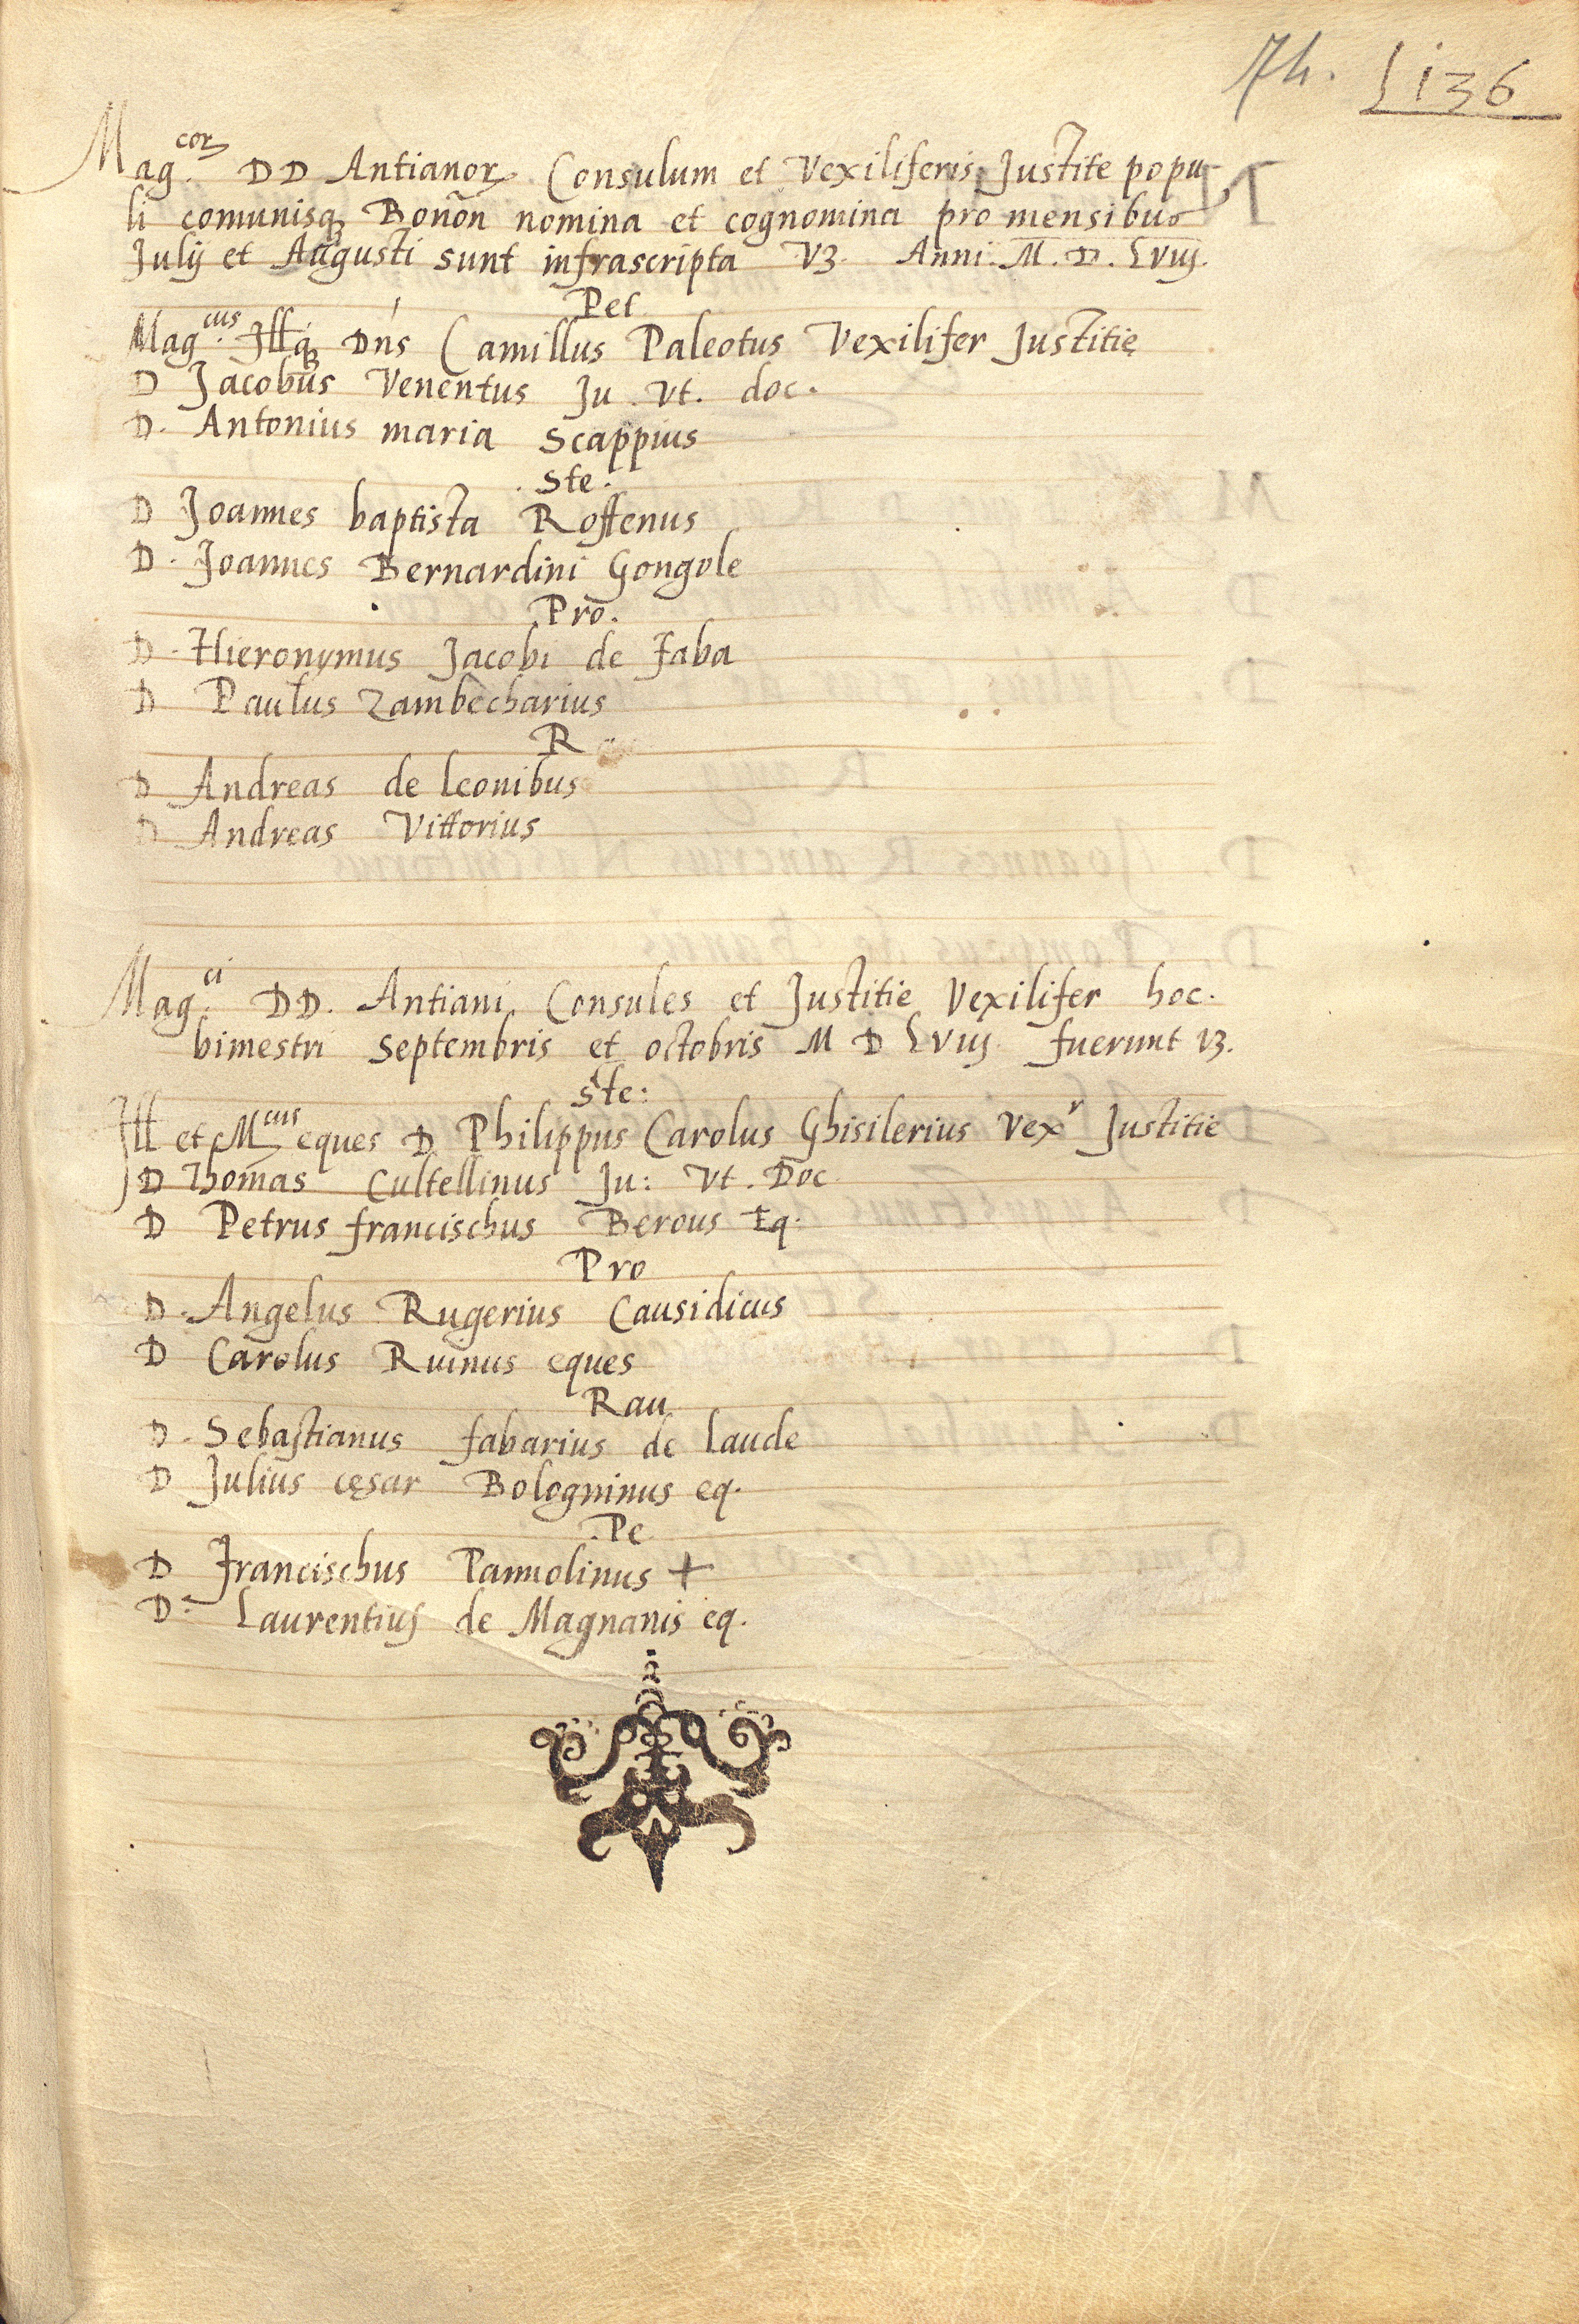 74. 136
Mag.cor DD Antianor Consulum et Vexiliferis Justite popu
li comunisq Bonōn nomina et cognomina pro mensibus
Julij et Augusti sunt infrascripta V3. Anni. M. D. Lviij.
Pet
Mag.cus Illq Dn̄s Camillus Paleotus Vexilifer Justitię
D Jacobus Venentus Ju. Vt. doc.
D. Antonius maria Scappius
. Ste.
D Joannes baptista Roffenus
D. Joannes Bernardini Gongole
Pro.
D. Hieronymus Jacobi de Faba
D Paulus Zambecharius
R
D Andreas de leonibus
D Andreas Vittorius
Mag.ci DD. Antiani Consules et Justitie Vexilifer hoc.
bimestri Septembris et octobris M D Lviij fuerunt V3.
Ste:
Ill et Mcus eques D Philippus Carolus Ghisilerius Vexr Justitie
D Thomas Cultellinus Ju: Vt. Doc
D Petrus francischus Berous Eq.
Pro
D. Angelus Rugerius Causidicus
D Carolus Ruinus eques
Rau
D. Sebastianus fabarius de laude
D Julius cęsar Bologninus eq.
.Pe
D Francischus Pannolinus +
D. Laurentius de Magnanis eq.